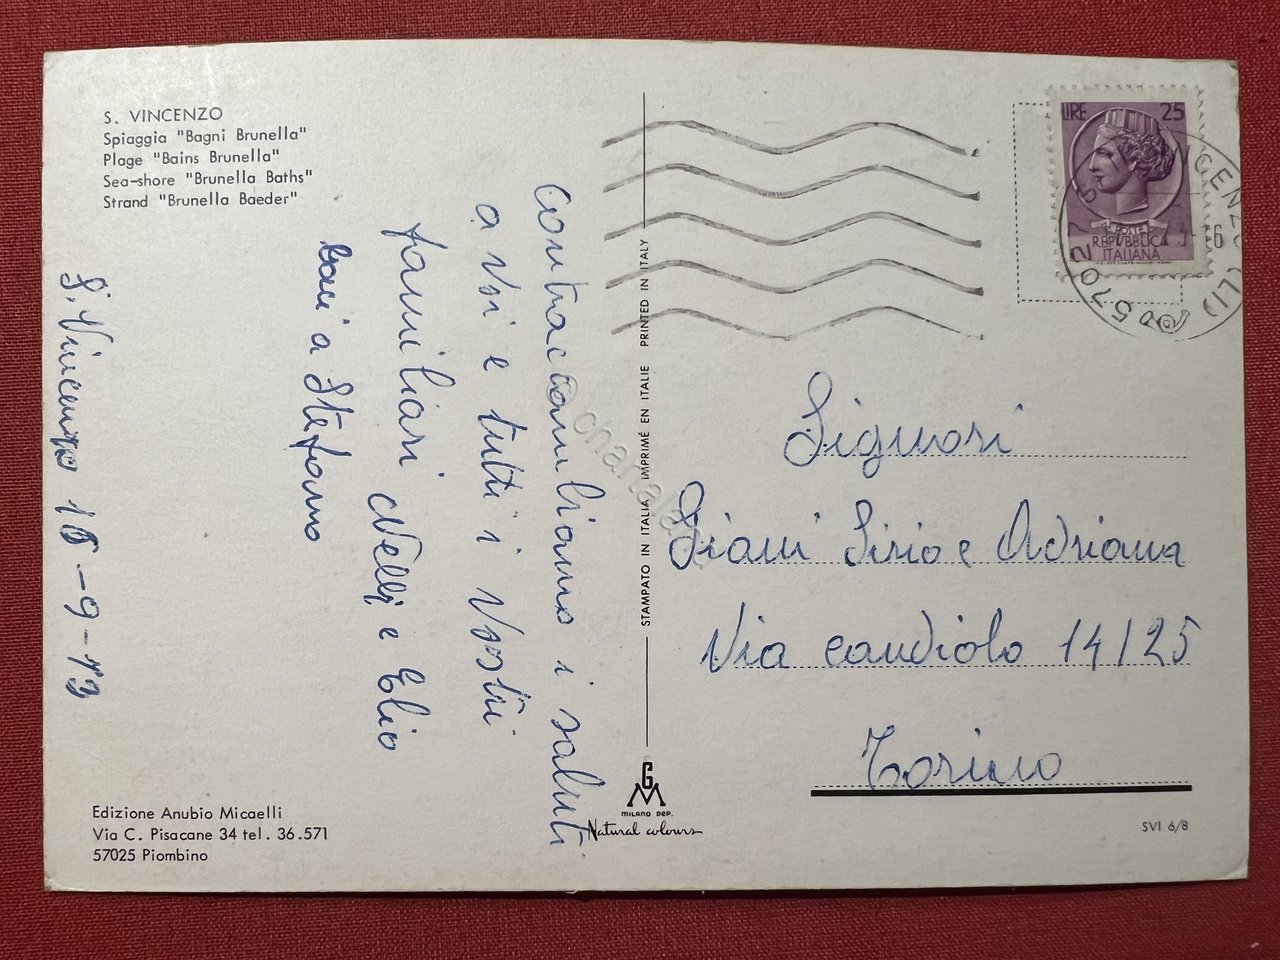 S. VINCENZO
Spiaggia "Bagni Brunella"
Plage "Bains Brunella"
Sea-shore "Brunella Baths"
Strand "Brunella Baeder"
Contraccambiamo i saluti
a Voi e tutti i Vostri
famigliari Nelli e Elio
baci a Stefano
S. Vincenzo 16-9-73
Edizione Anubio Micaelli
Via C. Pisacane 34 tel. 36.571
57025 Piombino
STAMPATO IN ITALIA IMPRIMÉ EN ITALIE PRINTED IN ITALY
GM
MILANO DEP.
Natural colours
LIRE 25
POSTE
REPVBBLICA
ITALIANA
Signori
Giani Sirio e Adriana
Via Candiolo 14/25
Torino
SVI 6/8